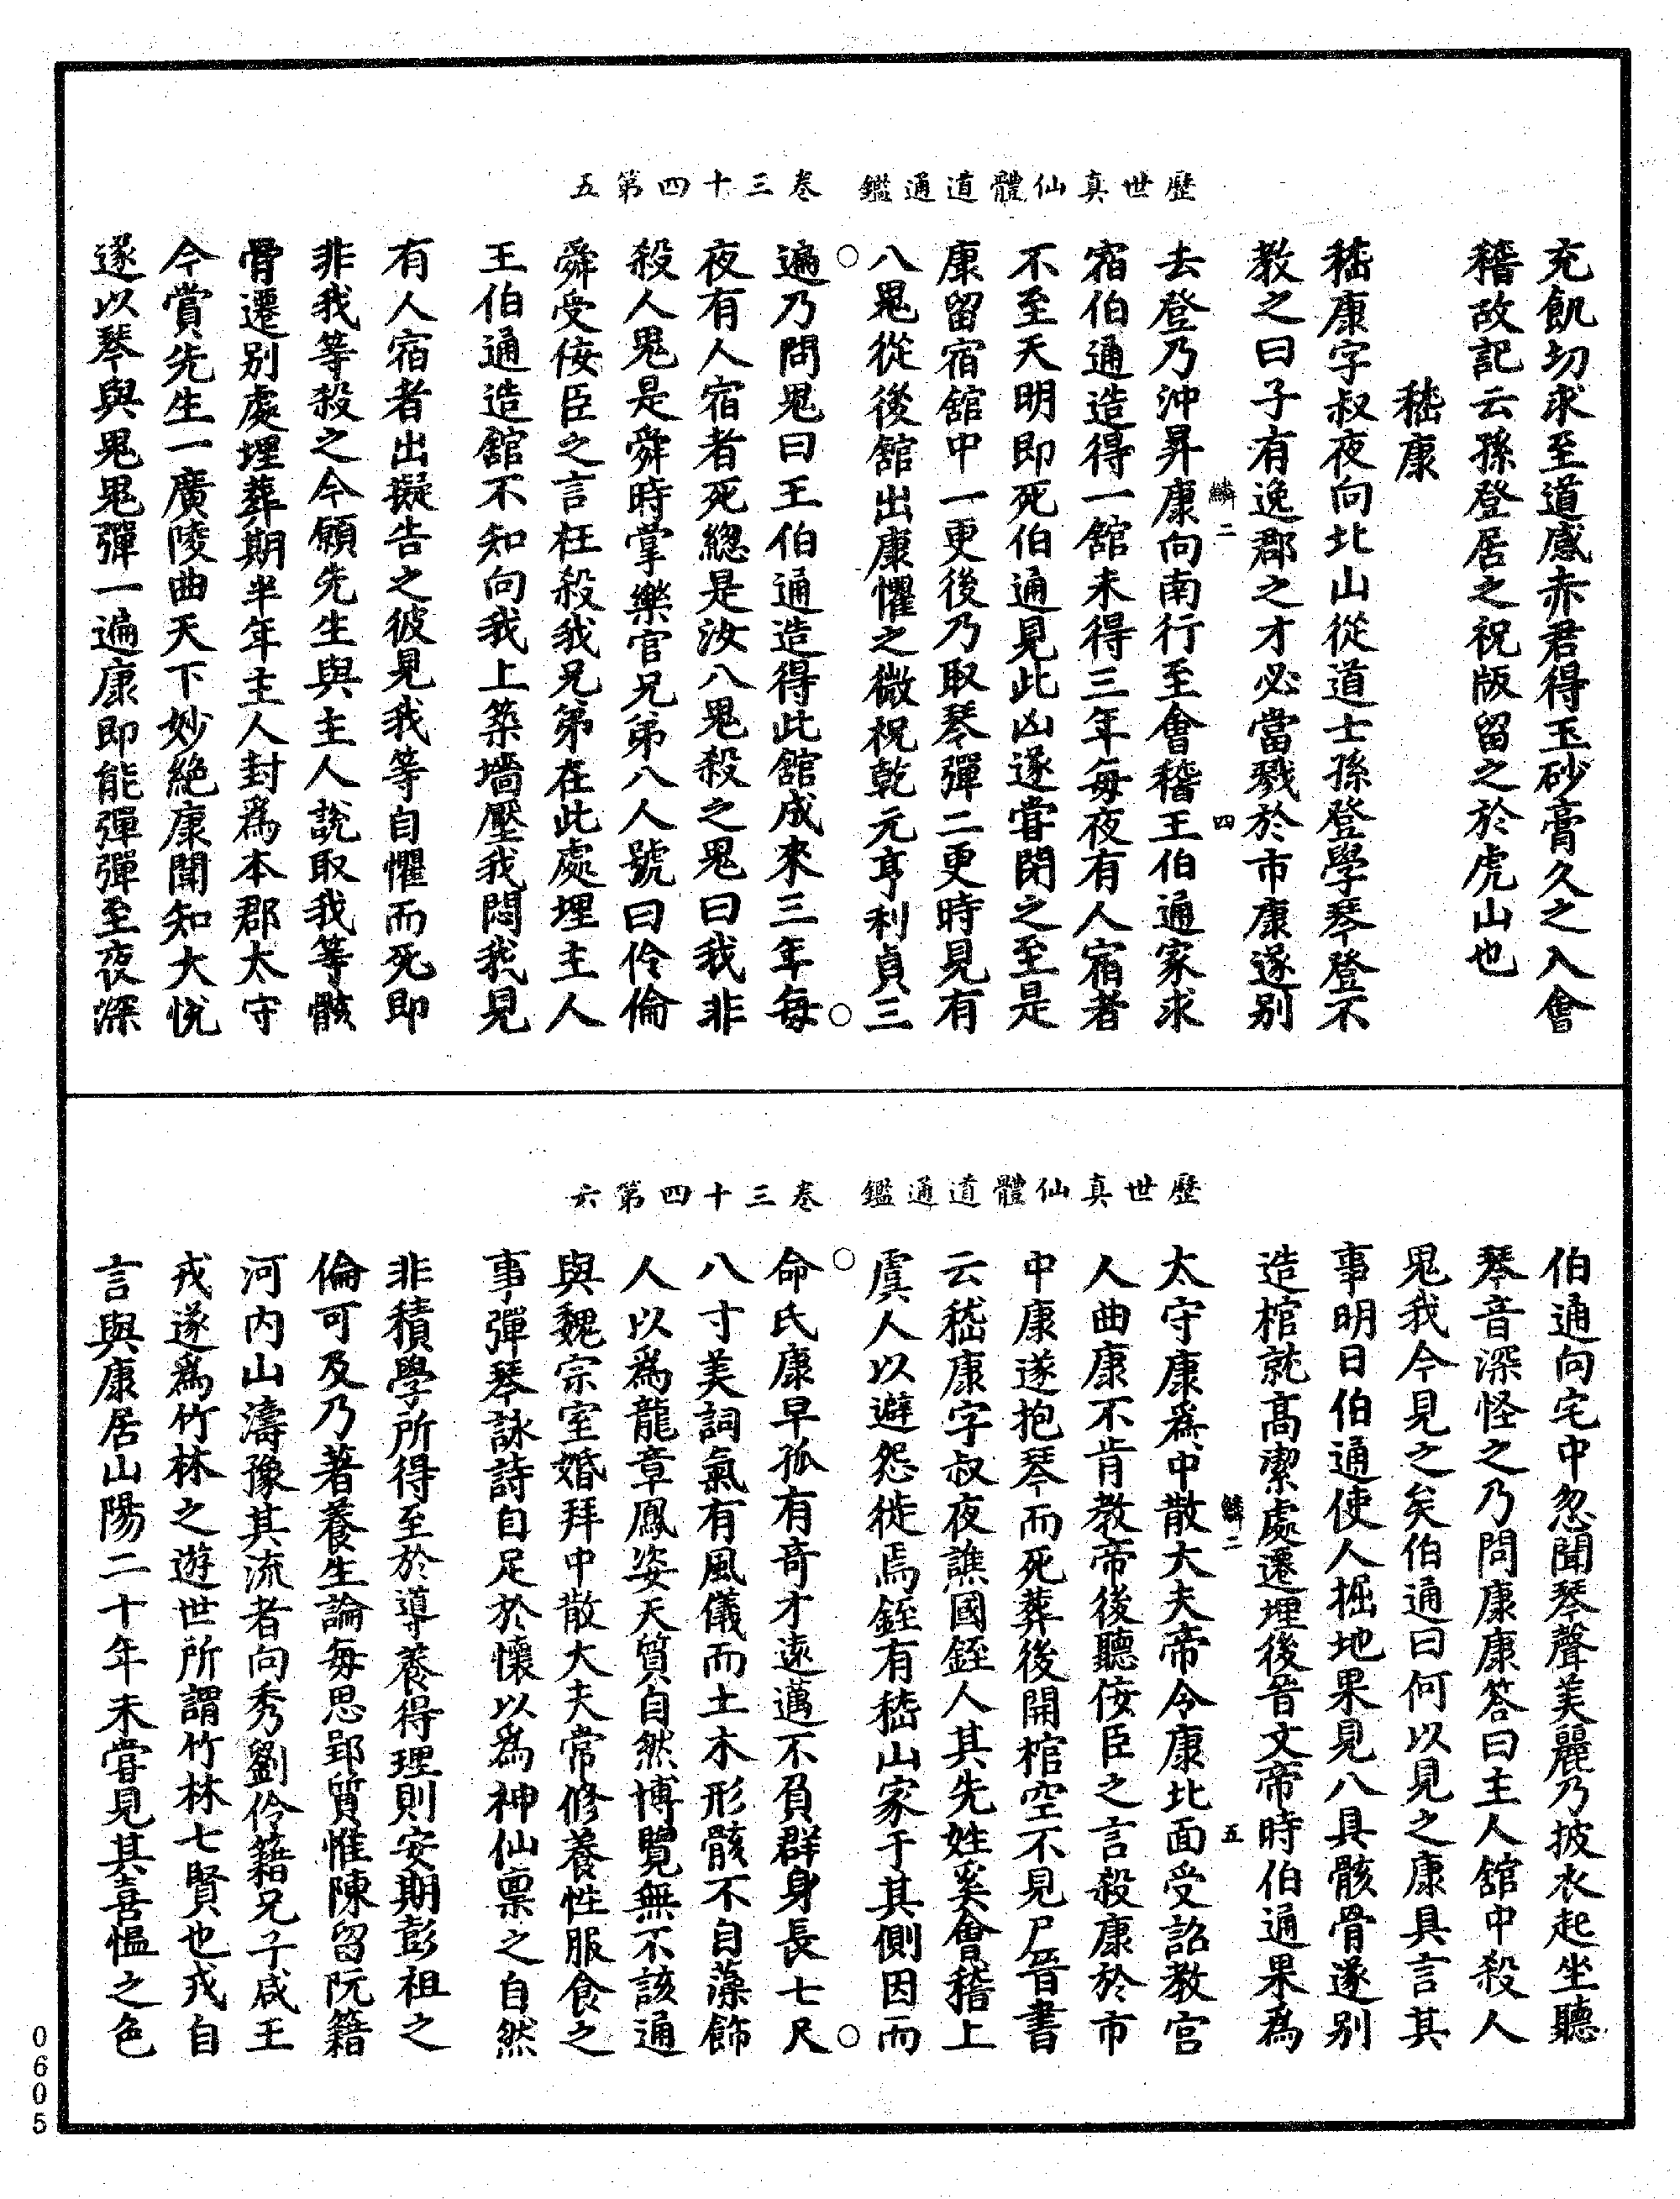 歷世真仙體道通鑑　卷三十四第五
充飢切求至道感赤君得玉砂膏久之入會
稽故記云孫登居之祝版留之於虎山也
嵇康
嵇康字叔夜向北山從道士孫登學琴登不
教之曰子有逸郡之才必當戮於市康遂別
鱗二　四
去登乃沖昇康向南行至會稽王伯通家求
宿伯通造得一舘未得三年每夜有人宿者
不至天明即死伯通見此凶遂嘗閉之至是
康留宿舘中一更後乃取琴彈二更時見有
八鬼從後舘出康懼之微祝乾元亨利貞三
遍乃問鬼曰王伯通造得此舘成來三年每
夜有人宿者死緫是汝八鬼殺之鬼曰我非
殺人鬼是舜時掌樂官兄弟八人號曰伶倫
舜受佞臣之言枉殺我兄弟在此處埋主人
王伯通造舘不知向我上築墻壓我悶我見
有人宿者出擬告之彼見我等自懼而死即
非我等殺之今願先生與主人說取我等骸
骨遷別處埋葬期半年主人封爲本郡太守
今賞先生一廣陵曲天下妙絶康聞知大悅
遂以琴與鬼鬼彈一遍康即能彈彈至夜深
歷世真仙體道通鑑　卷三十四第六
伯通向宅中忽聞琴聲美麗乃披衣起坐聽
琴音深怪之乃問康康答曰主人舘中殺人
鬼我今見之矣伯通曰何以見之康具言其
事明日伯通使人掘地果見八具骸骨遂別
造棺就高潔處遷埋後晉文帝時伯通果爲
鱗二　五
太守康爲中散大夫帝令康北面受詔教宫
人曲康不肯教帝後聽佞臣之言殺康於市
中康遂抱琴而死葬後開棺空不見尸晉書
云嵇康字叔夜譙國銍人其先姓奚會稽上
虞人以避怨徙焉銍有嵇山家于其側因而
命氏康早孤有奇才遠邁不負群身長七尺
八寸美詞氣有風儀而土木形骸不自藻飾
人以爲龍章鳳姿天質自然博覽無不該通
與魏宗室婚拜中散大夫常修養性服食之
事彈琴詠詩自足於懷以爲神仙稟之自然
非積學所得至於導養得理則安期彭祖之
倫可及乃著養生論每思郢質惟陳留阮籍
河内山濤豫其流者向秀劉伶籍兄子咸王
戎遂爲竹林之遊世所謂竹林七賢也戎自
言與康居山陽二十年未嘗見其喜愠之色
0605